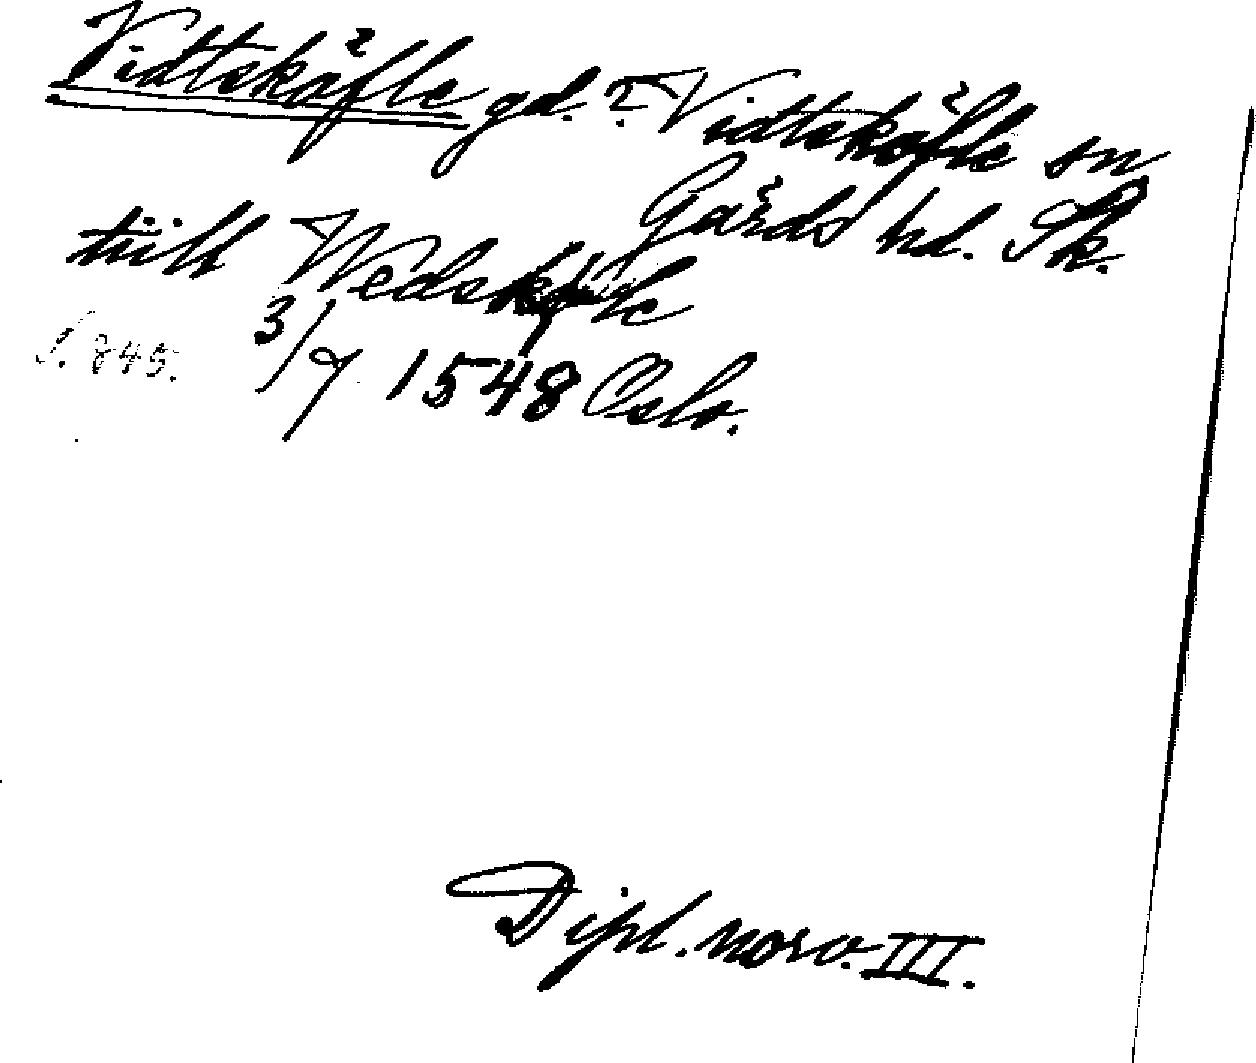 Vidtsköfle gd. ? Vidtsköfle sn
Gärds hd. Sk.
tiill Wedsköfle
S. 845. 3/7 1548 Oslo.
Dipl. norv. III.